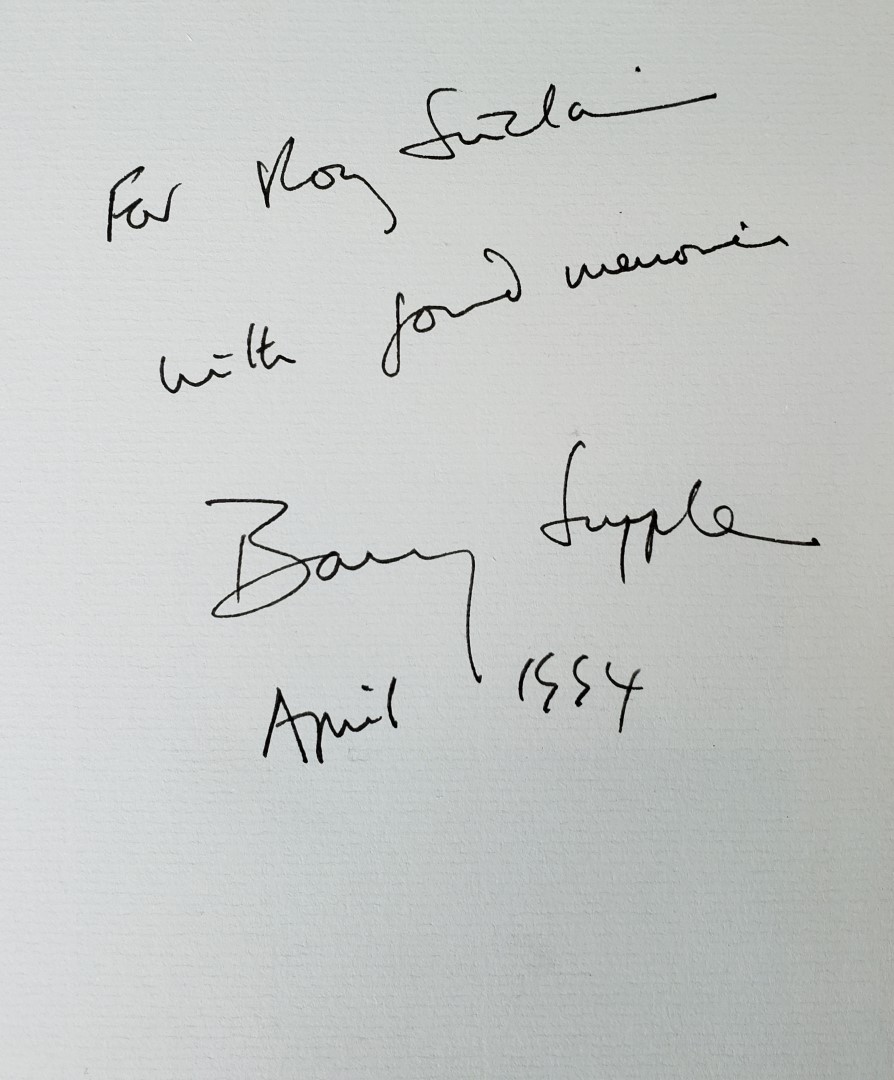 For Roy Sinclair
with fond memories
Barry Supple
April 1994